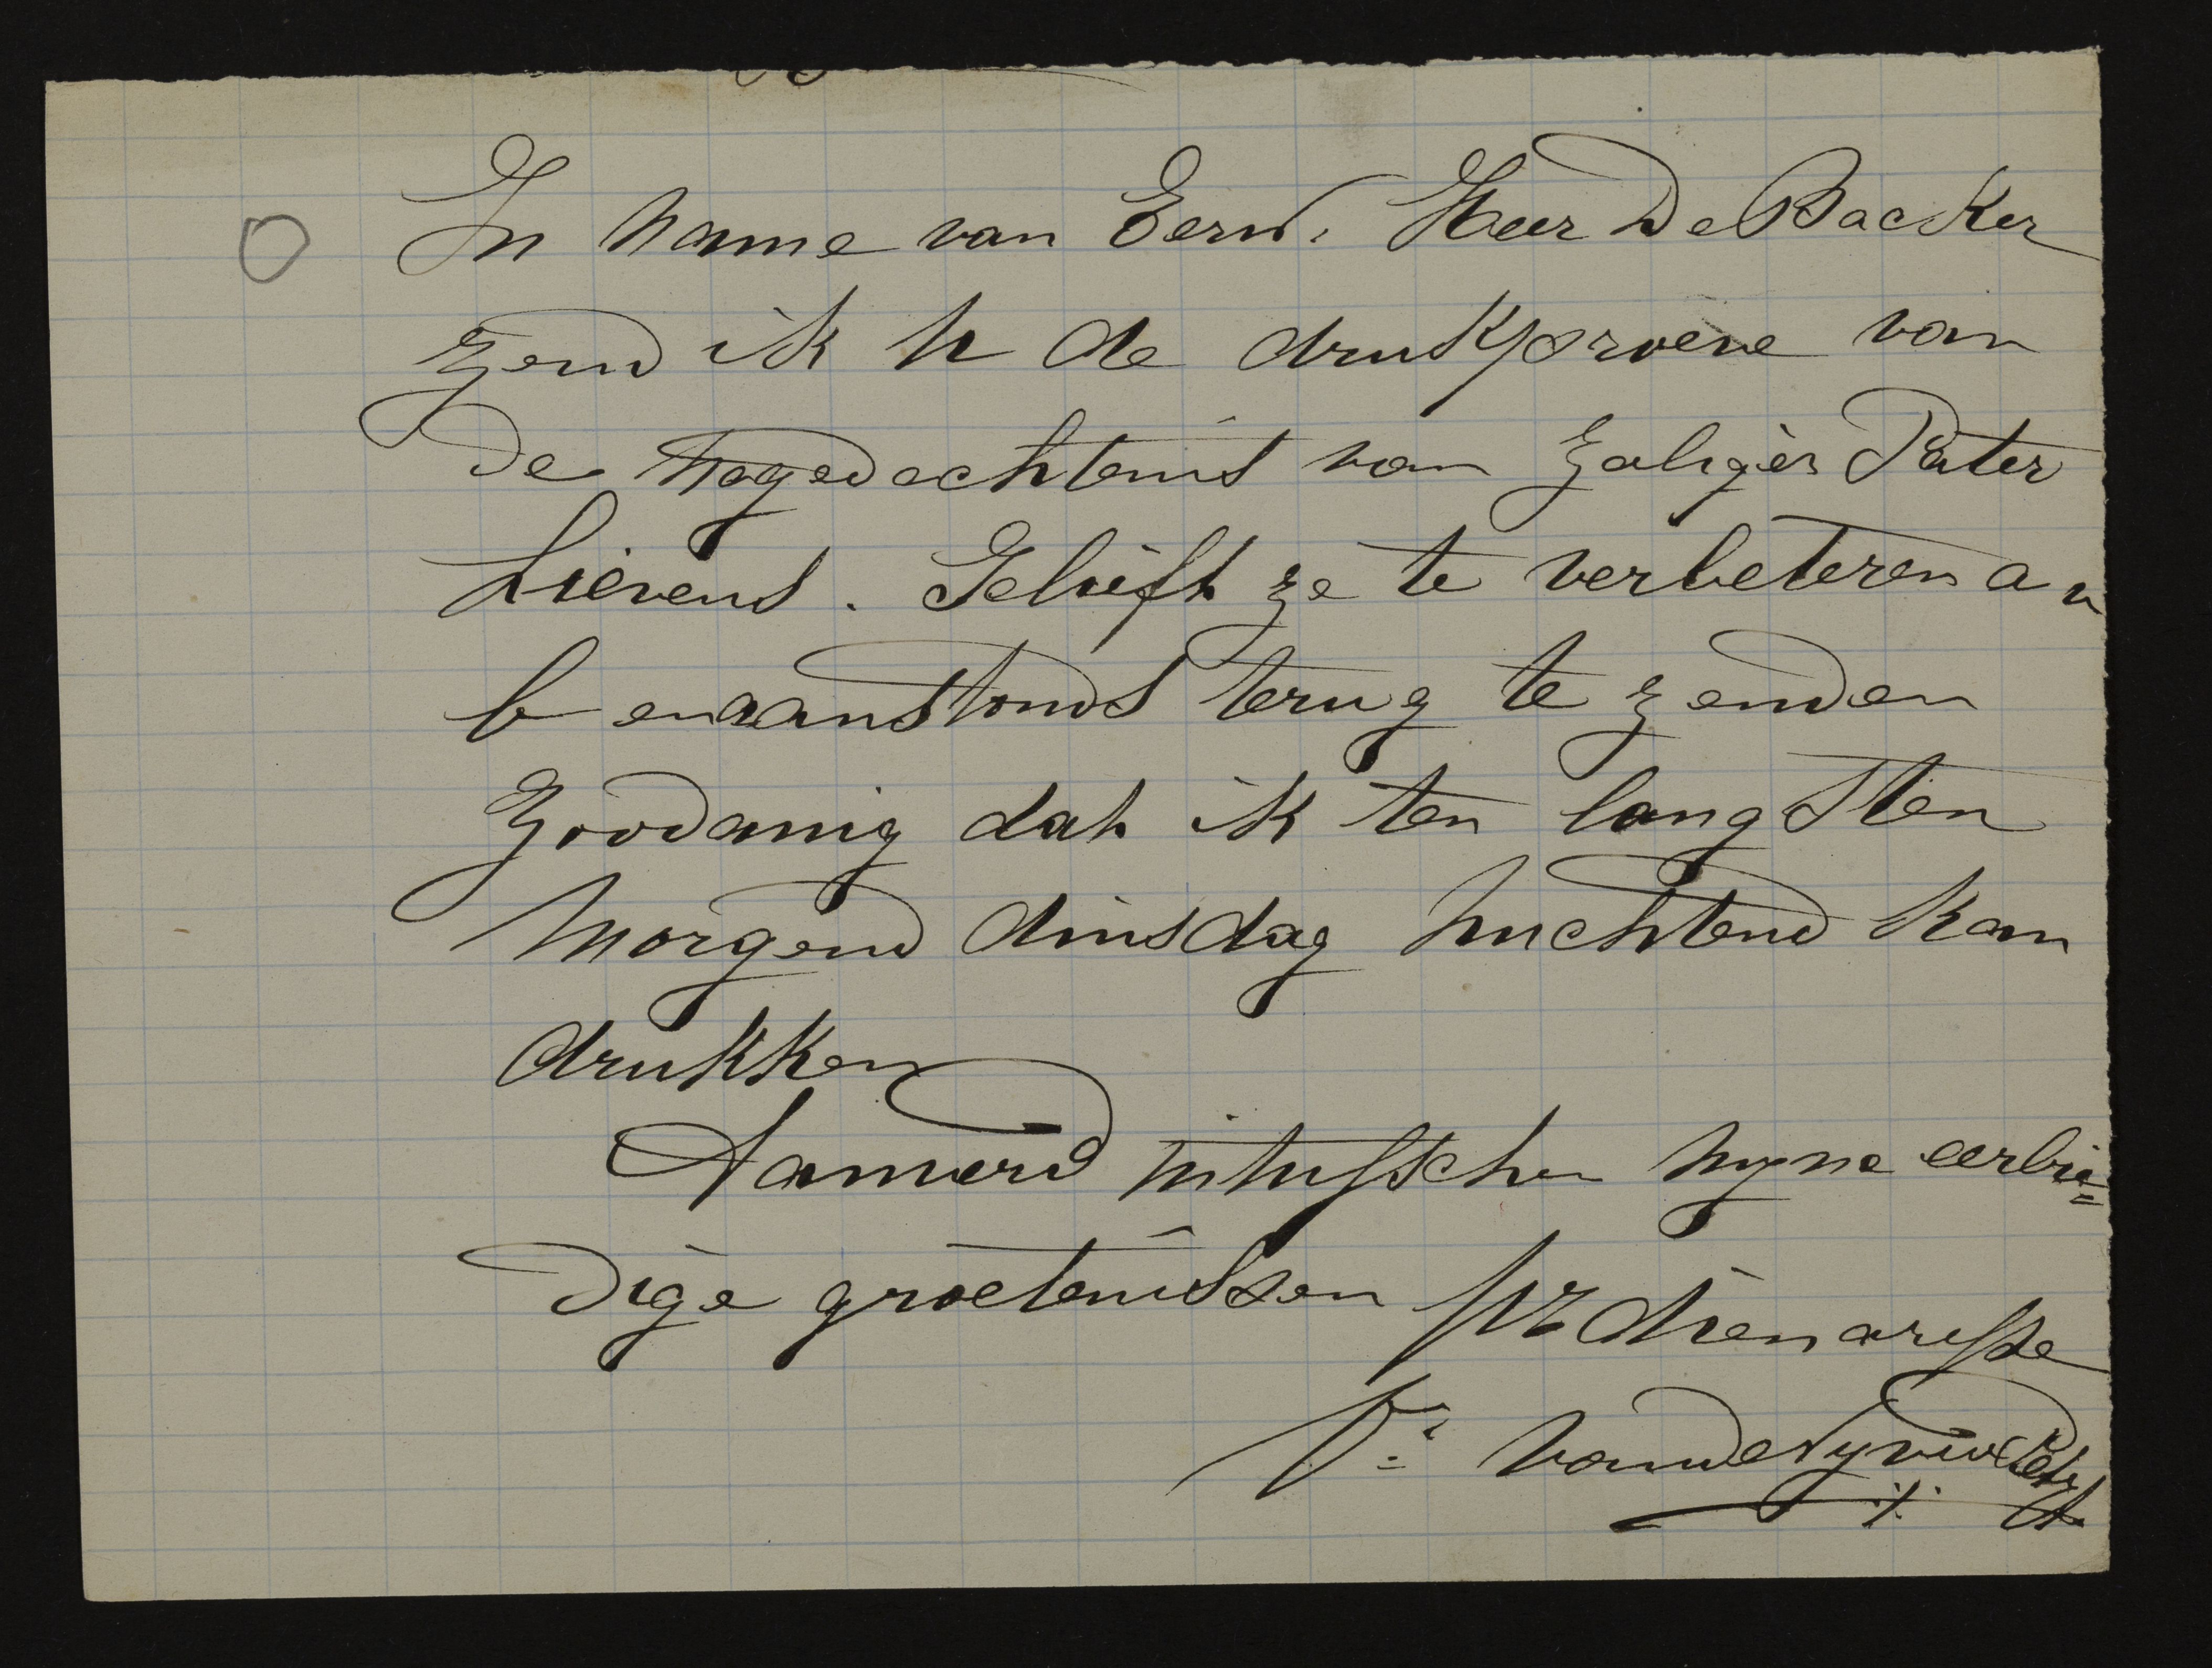 In name van Eerw. Heer De Backer
zend ik U de drukproeve van
de nagedachtenis van zaliger Pater
Lievens. Gelieft ze te verbeteren en
benaanstonds terug te zenden
zoodanig dat ik ten langsten
morgend dinsdag uchtend kan
drukken
Aanverd intusschen myne eerbie=
dige groetenissen
Uw dienaresse
We Vande Vyvere Petyt